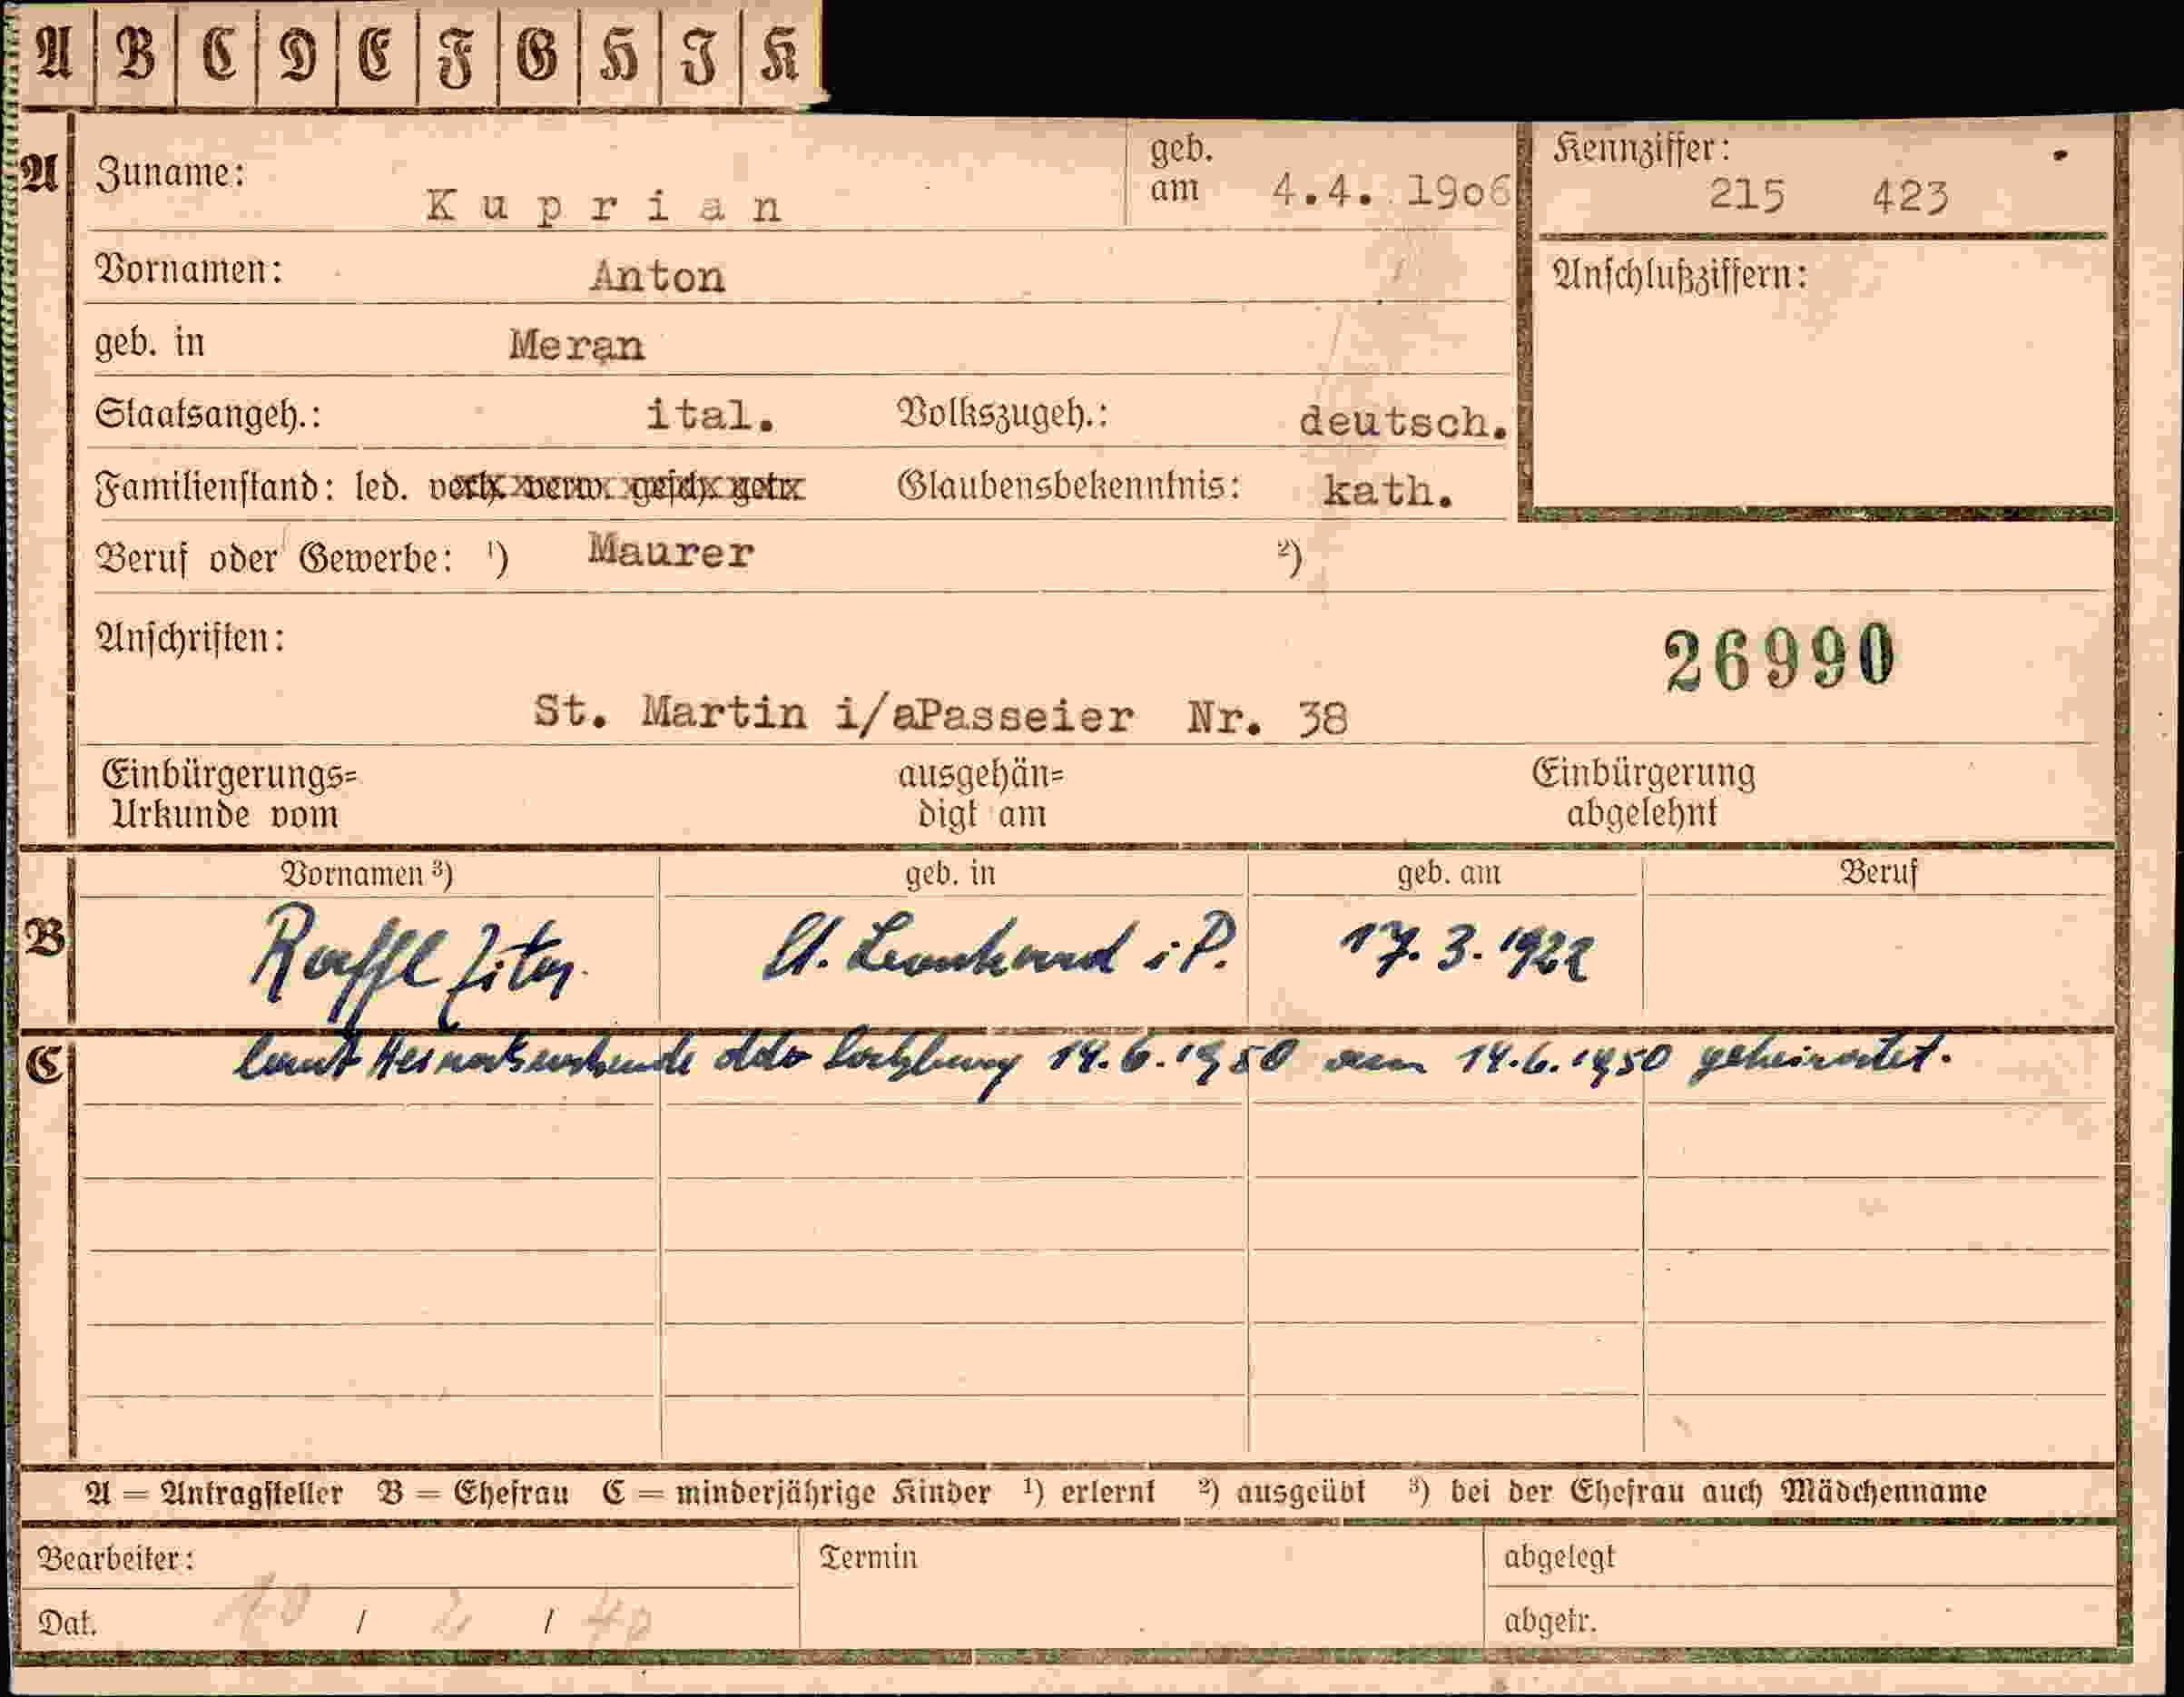 A B C D E F G H I K
A Zuname: Kuprian geb. am 4.4. 1906 Kennziffer: 215 423
Vornamen: Anton Anschlußziffern:
geb. in Meran
Staatsangeh.: ital. Volkszugeh.: deutsch.
Familienstand: led. verh. verw. gesch. getr. Glaubensbekenntnis: kath.
Beruf oder Gewerbe: ¹) Maurer ²)
Anschriften: 26990
St. Martin i/aPasseier Nr. 38
Einbürgerungs= ausgehän= Einbürgerung
Urkunde vom digt am abgelehnt
Vornamen ³) geb. in geb. am Beruf
B Raffl Zita St. Leonhard i P. 17. 3. 1922
C laut Heiratsurkunde dto Salzburg 14. 6. 1950 am 14. 6. 1950 geheiratet.
A = Antragsteller B = Ehefrau C = minderjährige Kinder ¹) erlernt ²) ausgeübt ³) bei der Ehefrau auch Mädchenname
Bearbeiter: Termin abgelegt
Dat. / 2 / 40 abgetr.